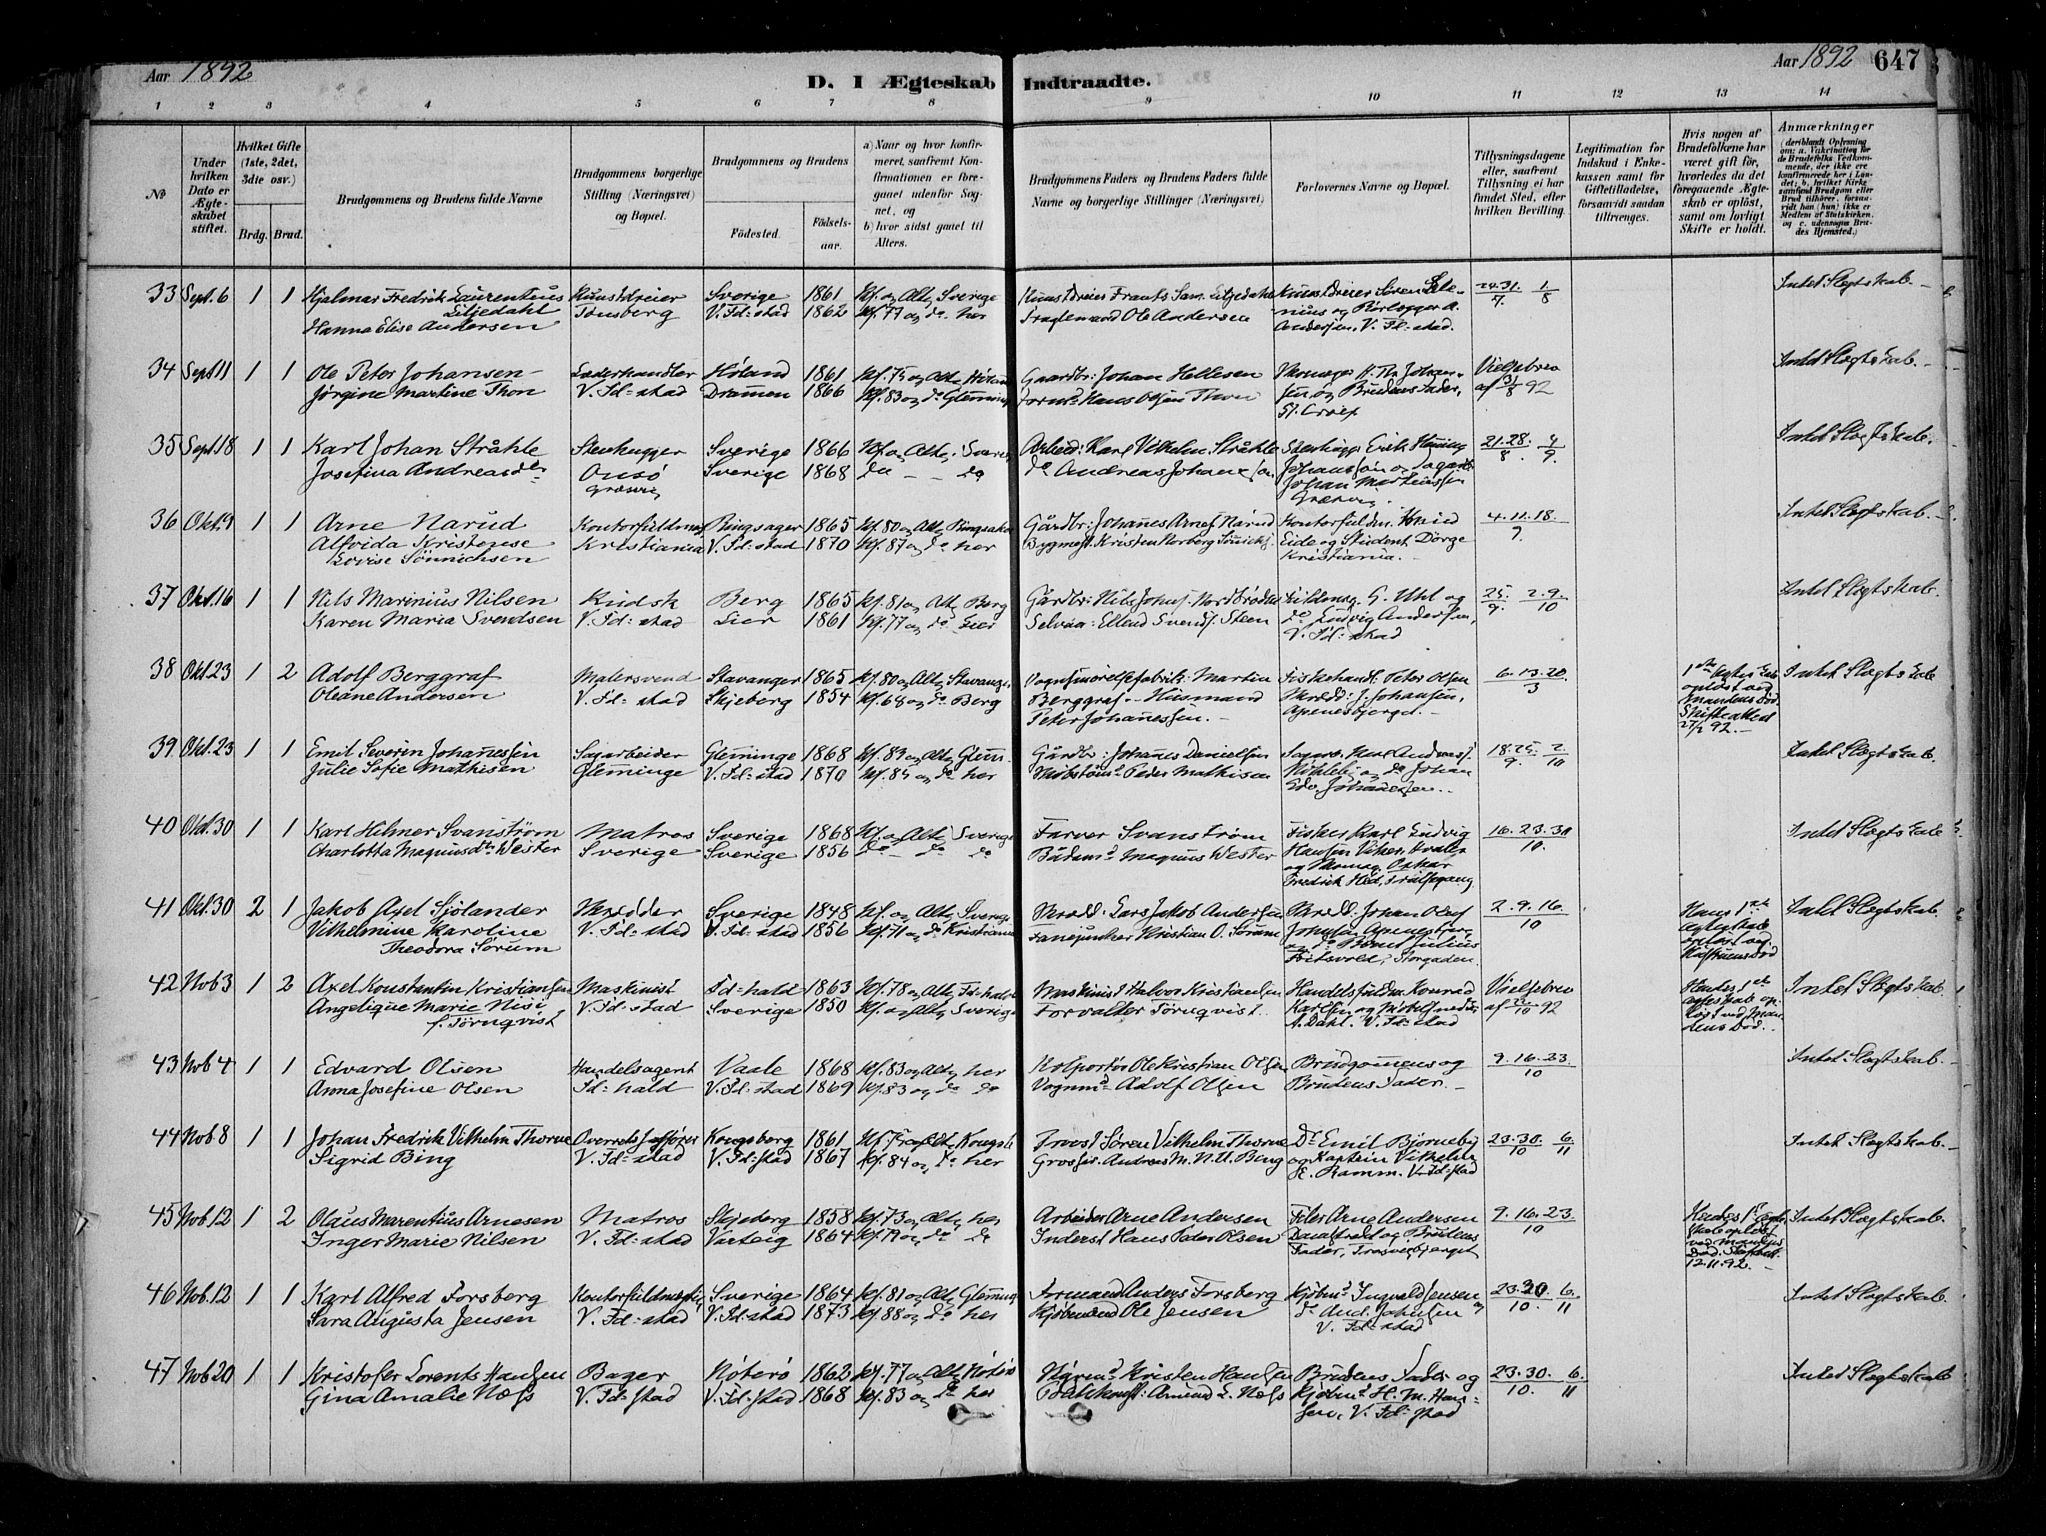 Aar 1892
D. I Ægteskab Indtraadte.
Aar 1892 647
1 2 3 4 5 6 7 8 9 10 11 12 13 14
No
Under hvilken Dato er Ægteskabet stiftet.
Hvilket Gifte (1ste, 2det, 3die osv.)
Brdg. Brud.
Brudgommens og Brudens fulde Navne
Brudgommens borgerlige Stilling (Næringsvei) og Bopæl.
Brudgommens og Brudens
Födested. Födsels-aar.
a) Naar og hvor konfirmeret, saafremt Konfirmationen er foregaaet udenfor Sognet, og
b) hvor sidst gaaet til Alters.
Brudgommens Faders og Brudens Faders fulde Navne og borgerlige Stillinger (Næringsvei)
Forlovernes Navne og Bopæl.
Tillysningsdagene eller, saafremt Tillysning ei har fundet Sted, efter hvilken Bevilling.
Legitimation for Indskud i Enkekassen samt for Giftetilladelse, forsaavidt saadan tiltrænges.
Hvis nogen af Brudefolkene har været gift för, hvorledes da det foregaaende Ægteskab er oplöst, samt om lovligt Skifte er holdt.
Anmærkninger (deriblandt Oplysning om: a. Vakcination for de Brudefolks Vedkommende, der ikke ere konfirmerede her i Landet; b. hvilket Kirkesamfund Brudgom eller Brud tilhörer, forsaavidt han (hun) ikke er Medlem af Statskirken, og c. udensogns Brudes Hjemsted.)
33 Sept. 6 1 1 Hjalmar Fredrik Laurentius Kunstdreier Sverige 1861 Kf. og Alt. Sverige Kunstdreier Frants Sam. Liljedahl Kunstdreier Søren 24.31. 1 Intet Slegtskab.
Liljedahl Tønsberg V. Fd:stad 1862 Kf. 77 og do her Ole Andersen 7 8
Hanna Elise Andersen Andersen, V. Fd:stad.
34 Sept 11 1 1 Ole Peter Johansen Læderhandler Høland 1861 Kf. 75 og Alt. Høland Gaardbr: Johan Hellesen Vielsebrev Intet Slegtskab.
Jørgine Martine Thon V. Fd:stad Dramen 1866 Kf. 83 og do Glemminge Hans Olsen Thon og Brudens Fader, af 31/8 92
35 Sept 18 1 1 Karl Johan Stråhle Stenhugger Sverige 1866 Kf. og Alt. Sverige Arbeid: Karl Vilhelm Stråhle Stenhugg. Erik Henning 21.28. 4 Intet Slegtskab.
Josefina Andreasdr Onsø Sverige 1868 do do do Andreas Johanesson Johansson og 8 9
Græsvig Johan Martinssen
36 Okt. 9 1 1 Arne Narud Kontorfuldmæg Ringsager 1865 Kf. 80 og Alt. Ringsaker Gårdbr: Johannes Arnes. Narud Kontorfuldm. 4.11.18. Intet Slegtskab.
Alfvida Kristense Kristiania V. Fd:stad 1870 Kf. 87 og do her Bygmest. Kristen Eide og Student Dørge 9.
Lovise Sönnichsen Kristiania.
37 Okt. 16 1 1 Nils Marinius Nilsen Kudsk Berg 1865 Kf. 81 og Alt. Berg Gårdbr: Nils Johns. G. Uhl og 25. 2.9. Intet Slegtskab.
Karen Maria Svendsen V. Fd:stad Lier 1861 Kf. 77 og do Lier Selvei: Ellend Svends. Steen do Ludvig Andersen, 9. 10
V. Fd:stad
38 Okt. 23 1 2 Adolf Berggraf Malersvend Stavanger 1865 Kf. 80 og Alt. Stavanger Vognsmørelsefabrik: Martin Fiskehandl. Peter Olsen 6.13.20. 1ste Egteskab Intet Slegtskab
Oleane Andersen V. Fd:stad Skjeberg 1854 Kf. 68 og do Berg Berggraf. Husmand J. Johansen, 3 opløst ved
Peter Johanessen. Apenesbjerget. Mandens Død.
92.
39 Okt. 23 1 1 Emil Severin Johannessen Sagarbeider Glemminge 1868 Kf. 83 og Alt. Glem. Gårdbr: Johannes Danielsen Sagarb. 18.25. 2 Intet Slegtskab.
Julie Sofie Mathisen Glemminge V. Fd:stad 1870 Kf. 85 og do her Peder Mathisen og do Johan 9. 10
Edv. Johannessen.
40 Okt. 30 1 1 Karl Hilmer Svanstrøm Matros Sverige 1868 Kf. og Alt. Sverige Farver Svanstrøm Fisker Karl Ludvig 16.23.30 Intet Slegtskab
Charlotta Magnusdtr Wester Sverige Sverige 1856 do do do Magnus Wester Hansen Viker, Hvaler 10.
og Skomag. Oskar
Fredrik Hed,
41 Okt. 30 2 1 Jakob Axel Sjölander Skredder Sverige 1848 Kf. og Alt. Sverige Skredd: Lars Jakob Andersen Skredd. Johan Oluf 2.9.16. Hans 1ste Intet Slegtskab.
Vilhelmine Karoline V. Fd:stad V. Fd:stad 1856 Kf. 71 og do Kristiania Fanejunker Kristian O. Sørum Johnsen, Apenesbjerg 10 Egteskab
Theodora Sørum og do Bernt Julius opløst ved
Fritsvold, Storgaden. Hustruens Død
42 Nob 3 1 2 Axel Konstantin Kristiansen Maskinist Fd=hald 1863 Kf. 78 og Alt. Fd:hald Maskinist Halvor Kristiansen Handelsfuldm. Konrad Vielsebrev Hendes 1ste Intet Slegtskab.
Angelique Marie Nisi V. Fd:stad Sverige 1850 Kf. og Alt. Sverige Forvalter Törnqvist. Karlsen og af 22/10 92
f. Törnqvist A. Dahl. V. Fd:stad
43 Nob 4 1 1 Edvard Olsen Handelsagent Vaale 1868 Kf. 83 og Alt. her Kolportør Ole Kristian Olsen Brudgommens og 9.16.23. Intet Slegtskab.
Anna Josefine Olsen Fd:hald V. Fd:stad 1869 Kf. 83 og do do Vognmd Adolf Olsen Brudens Fader. 10
44 Nob. 8 1 1 Johan Fredrik Vilhelm Thorne Overretssagfører Kongsberg 1861 Kf. 75 og Alt. Kongsb. Provst Søren Vilhelm Thorne Dr Emil Bjørneby 23.30. 6. Intet Slegtskab.
Sigrid Bing V. Fd:stad V. Fd:stad 1867 Kf. 84 og do her Grosser. Andreas M. N. U. Bing og Kaptein Vilhelm 10 11
H. Ramm. V. Fd:stad
45 Nob. 12 1 2 Olaus Marentius Arnesen Matros Skjeberg 1858 Kf. 73 og Alt. her Arbeider Arne Andersen Arne Andersen 9.16.23 Intet Slegtskab.
Inger Marie Nilsen V. Fd:stad Varteig 1864 Kf. 79 og do do Inderst Hans Peder Olsen og Brudens 10
Fader, Trosvikbjerget
12.11.92.
46 Nob. 12 1 1 Karl Alfred Forsberg Kontorfuldmægtig Sverige 1864 Kf. 81 og Alt. Glemminge Formand Anders Forsberg Kjøbmd Ingvald Jensen 23.30 6. Intet Slegtskab.
Sara Augusta Jensen V. Fd:stad V. Fd:stad 1873 Kf. 88 og do her Kjøbmand Ole Jensen do And. Johnsen 10. 11
V. Fd:stad
47 Nob 20 1 1 Kristofer Lorents Hansen Bager Nøterø 1862 Kf. 77 og Alt. Nøterø Kristen Hansen Brudens Fader og 23.30. 6. Intet Slegtskab
Gina Amalie Næss V. Fd:stad V. Fd:stad 1868 Kf. 83 og do her Amund L. Næss Kjøbmd H. M. Han- 10. 11
sen, V. Fd:stad